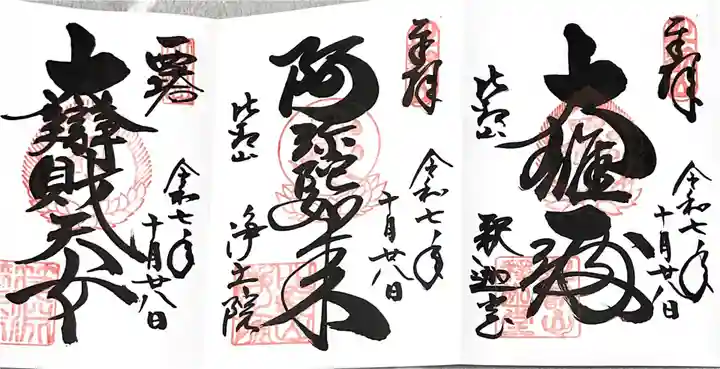 奉拝
令和七年
十月廿八日
大雄殿
比叡山
釈迦堂
奉拝
令和七年
十月廿八日
阿弥陀如来
比叡山
浄土院
令和七年
十月廿八日
大辨財天女
西塔